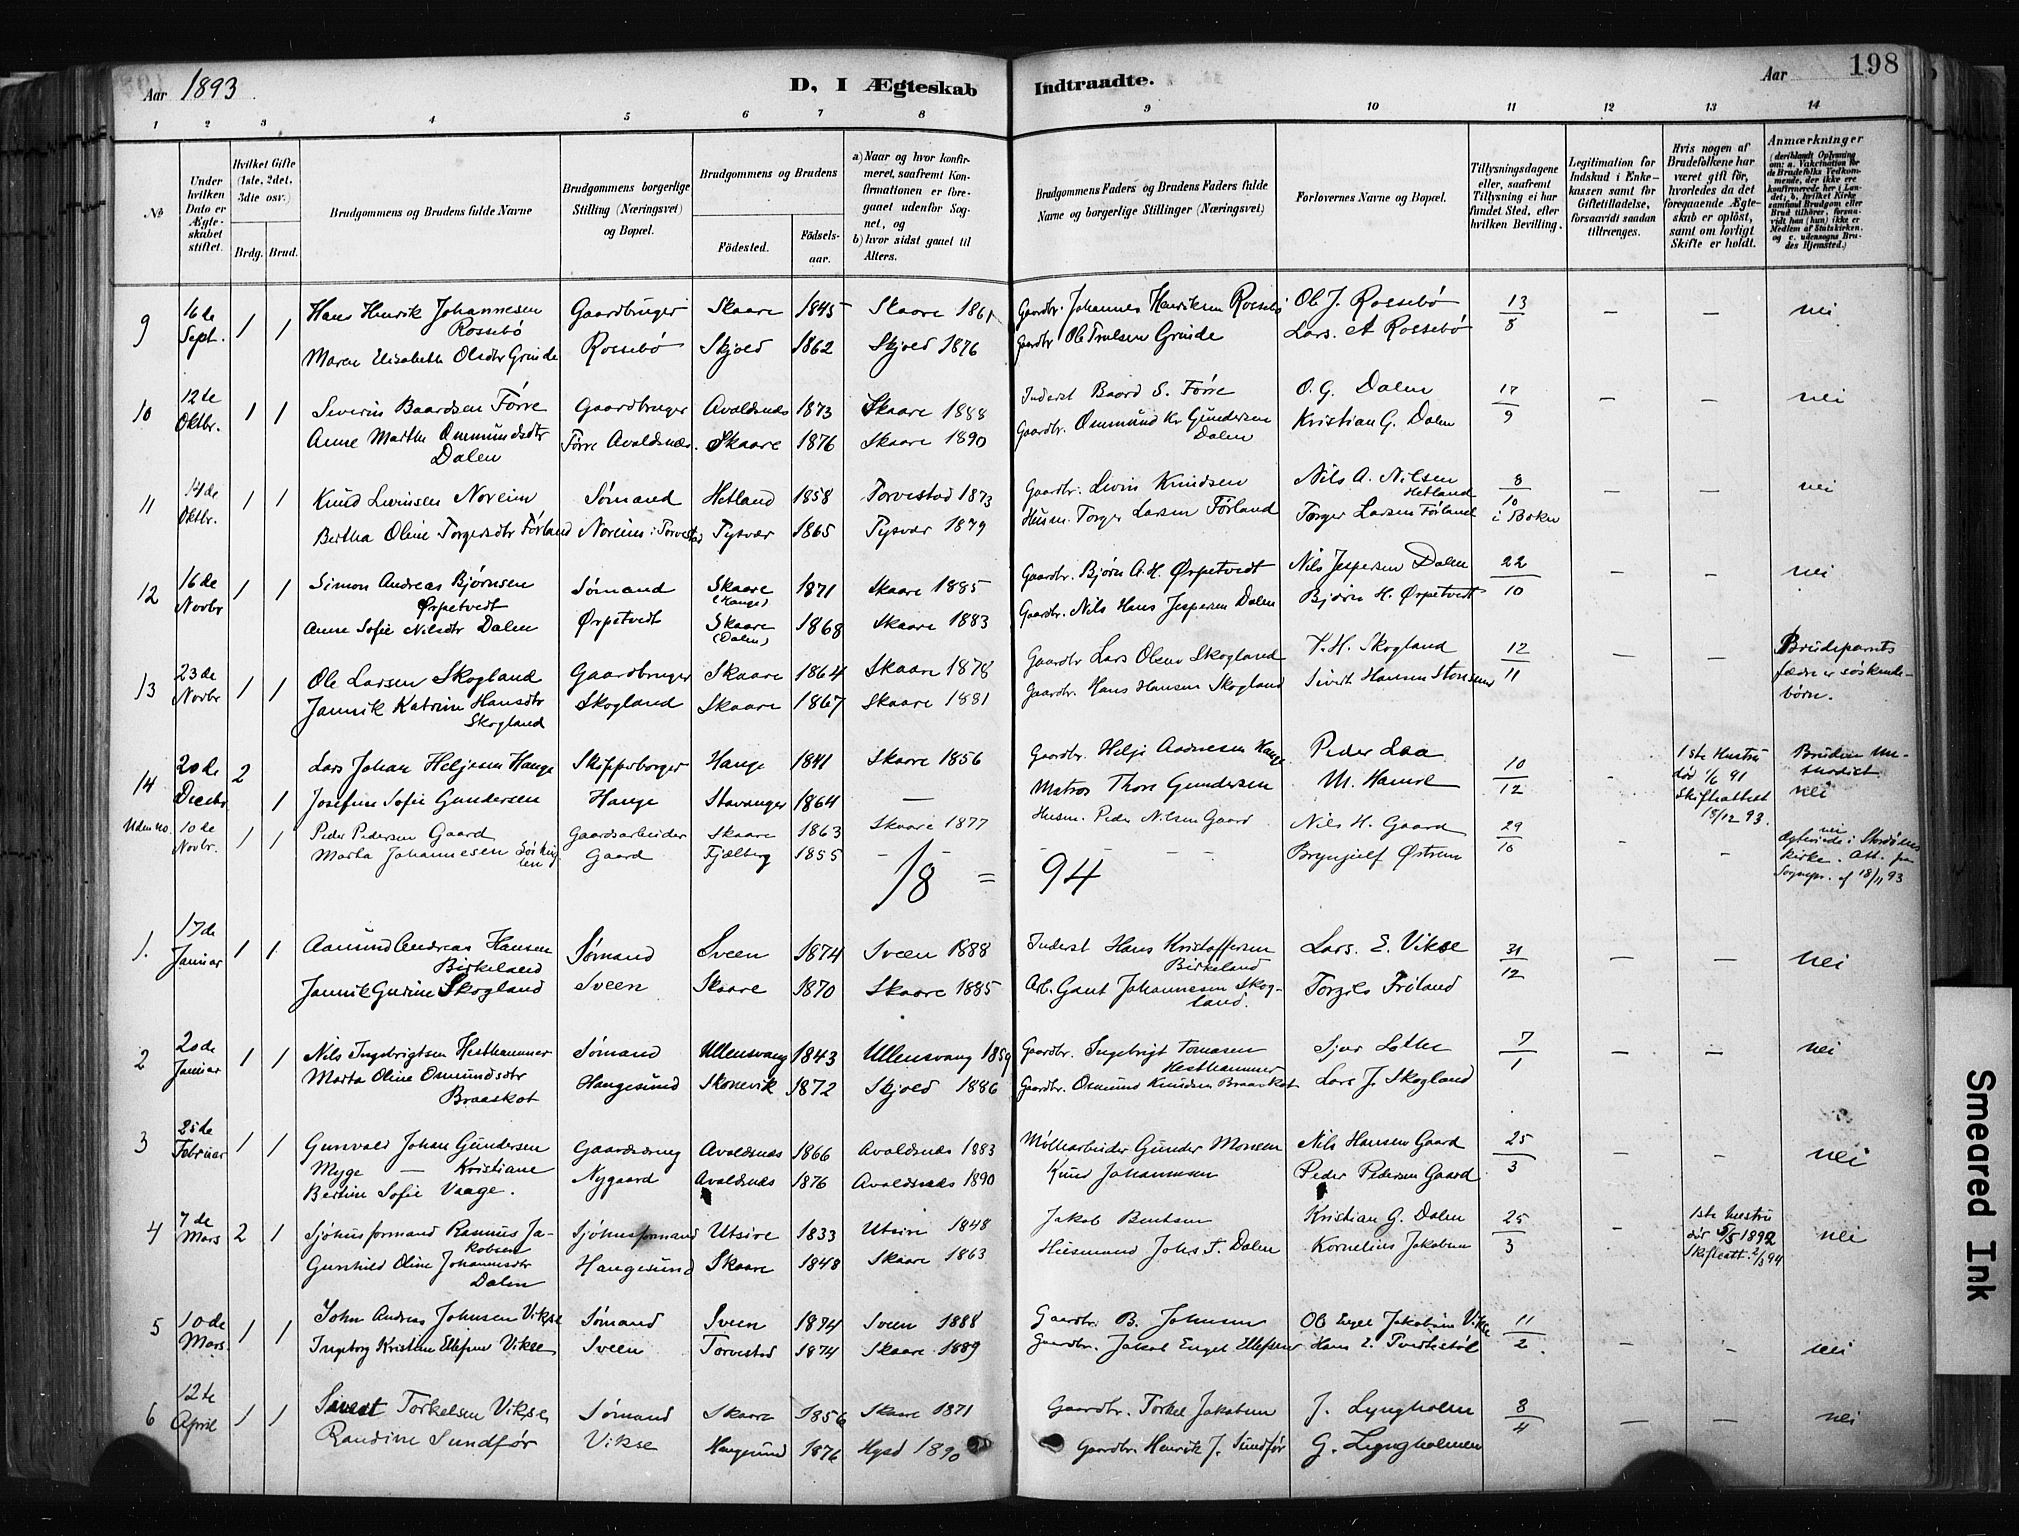 Aar 1893
D, I Ægteskab Indtraadte.
Aar 198
1 2 3 4 5 6 7 8 9 10 11 12 13 14
No
Under hvilken Dato er Ægteskabet stiftet.
Hvilket Gifte (1ste, 2det, 3dte osv.)
Brdg. Brud.
Brudgommens og Brudens fulde Navne
Brudgommens borgerlige Stilling (Næringsvei) og Bopæl.
Brudgommens og Brudens
Födested. Födsels-aar.
a) Naar og hvor konfirmeret, saafremt Konfirmationen er foregaaet udenför Sognet, og
b) hvor sidst gaaet til Alters.
Brudgommens Faders og Brudens Faders fulde Navne og borgerlige Stillinger (Næringsvei)
Forlovernes Navne og Bopæl.
Tillysningsdagene eller, saafremt Tillysning ei har fundet Sted, efter hvilken Bevilling.
Legitimation for Indskud i Enkekassen samt for Giftetilladelse, forsaavidt saadan tiltrænges.
Hvis nogen af Brudefolkene har været gift för, hvorledes da det foregaaende Ægteskab er oplöst, samt om lovligt Skifte er holdt.
Anmærkninger
(deriblandt Oplysning om: a. Vakcination for de Brudefolks Vedkommende, der ikke ere konfirmerede her i Landet; b. hvilket Kirkesamfund Brudgom eller Brud tilhörer, forsaavidt han (hun) ikke er Medlem af Statskirken, og c. udensogns Brudes Hjemsted.)
9 16de Sept. 1 1 Hans Henrik Johannesen Rossebö Gaardbruger Skaare 1845 Skaare 1861 Gaardbr. Johannes Henriksen Rossebö Ole J. Rossebö 13/8 — — nei
Maren Elisabeth Olsdtr Grinde Rossebö Skjold 1862 Skjold 1876 Gaardbr Ole Truelsen Grinde Lars. A Rossebö
10 12te Oktbr. 1 1 Severin Baardsen Førre Gaardbruger Avaldsnæs 1873 Skaare 1888 Inderst Baard S. Førre O. G. Dalen 17/9 — — nei
Anne Marthe Osmundsdtr Dalen Førre Avaldsnæs. Skaare 1876 Skaare 1890 Gaardbr. Osmund Kr Gundersen Dalen Kristian G. Dalen
11 14de Oktbr. 1 1 Knud Levinsen Noreim Sømand Hetland 1858 Torvestad 1873 Gaardbr. Levin Knudsen Nils A. Nilsen Hetland 8/10 i Bokn — — nei
Bertha Oline Torgersdtr Förland Noreim i Torvestad Tysvær 1865 Tysvær 1879 Husm. Torger Larsen Förland Torger Larsen Førland
12 16de Novbr 1 1 Simon Andreas Bjørnsen Ørpetvedt Sømand Skaare (Hauge) 1871 Skaare 1885 Gaardbr. Bjørn A. H. Ørpetvedt Nils Jespersen Dalen 22/10 — — nei
Anne Sofie Nilsdtr Dalen Ørpetvedt Skaare (Dalen) 1868 Skaare 1883 Gaardbr. Nils Hans Jespersen Dalen Bjørn H. Ørpetvedt
13 23de Novbr 1 1 Ole Larsen Skogland Gaardbruger Skaare 1864 Skaare 1878 Gaardbr Lars Olsen Skogland H. Skogland 12/11 — — Brudeparrets fædre er søskendebörn.
Jannik Katrine Hansdtr Skogland Skogland Skaare 1867 Skaare 1881 Gaardbr. Hans Hansen Skogland Sivert Hansen
14 20de Decebr 2 1 Lars Johan Heljesen Hauge Skipperborger Hauge 1841 Skaare 1856 Gaardbr. Helje Hauge Peder Laa 10/12 - 1ste Hustru död 1/6 91 Skifteattest 18/12 93. Bruden Methodist nei
Josefine Sofie Gundersen Hauge Stavanger 1864 — Matros Thore Gundersen M. Hamre
Uden no. 10de Novbr. 1 1 Peder Pedersen Gaard Gaardsarbeider Skaare 1863 Skaare 1877 Husm. Peder Nilsen Gaard Nils H. Gaard 29/10 - - nei
Marta Johannesen Gaard Fjælberg 1855 — — Brynjulf Østrem kirke. Att. fra Sognepr. af 18/11 93
18 = 94
1. 17de Januar 1 1 Aamund Andreas Hansen Birkeland Sømand Sveen 1874 Sveen 1888 Inderst Hans Kristoffersen Birkeland Lars. E. Vikse 31/12 — — nei
Jannik Gurine Skogland Sveen Skaare 1870 Skaare 1885 Arb. Gaut Johannesen Skogland. Torgils Frøland
2 20de Januar 1 1 Nils Ingebrigtsen Hesthammer Sømand Ullensvang 1843 Ullensvang 1859 Gaardbr. Ingebrigt Tomasen Hesthammer Sjur Lothe 7/1 — — nei
Marta Oline Osmundsdtr Braaskot Haugesund Skonevik 1872 Skjold 1886 Gaardbr. Osmund Knudsen Braaskot Lars J. Skogland
3 25de Februar 1 1 Gunvald Johan Gundersen Myge Gaardsdreng Avaldsnæs 1866 Avaldsnæs 1883 Møllearbeider Gunder Monsen Nils Hansen Gaard 25/3 - - nei
— Kristiane Bertine Sofie Vaage. Nygaard Avaldsnæs 1876 Avaldsnæs 1890 Knud Johannesen Peder Pedersen Gaard
4 7de Mars 2 1 Sjøhusformand Rasmus Jakobsen Sjøhusformand Utsire 1833 Utsire 1848 Jakob Bentsen Kristian G. Dalen 25/3 - 1ste hustru död 5/5 1892 Skifteatt. 2/3 94 nei
Gunhild Oline Johannesdtr Dalen Haugesund Skaare 1848 Skaare 1863 Husmand Johs T. Dalen Kornelius Jakobsen
5 10de Mars. 1 1 John Andreas Johnsen Vikse Sømand Sveen 1874 Sveen 1888 Gaardbr. B. Johnsen Ole Engel Jakobsen Vikse 11/2. — - nei
Ingeborg Kristine Ellefsen Vikse Sveen Torvestad 1874 Skaare 1889 Gaardbr. Jakob Engel Ellefsen Hans E.
6 12te April 1 1 Sivert Torkelsen Vikse Sømand Skaare 1856 Skaare 1871 Gaardbr. Torkel Jakobsen J. Lyngholm 8/4 — — nei
Randine Sundför Vikse Haugesund 1876 Hgsd 1890 Gaardbr. Henrik J. Sundför G. Lyngholmen
Smeared Ink